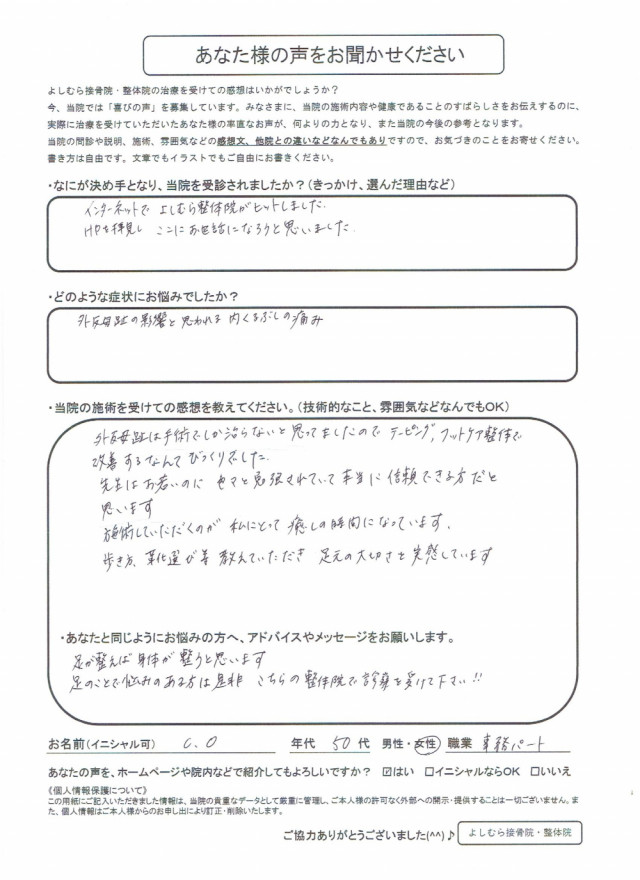 あなた様の声をお聞かせください
よしむら接骨院・整体院の治療を受けての感想はいかがでしょうか？
今、当院では「喜びの声」を募集しています。みなさまに、当院の施術内容や健康であることのすばらしさをお伝えするのに、
実際に治療を受けていただいたあなた様の率直なお声が、何よりの力となり、また当院の今後の参考となります。
当院の問診や説明、施術、雰囲気などの感想文、他院との違いなどなんでもありですので、お気づきのことをお寄せください。
書き方は自由です。文章でもイラストでもご自由にお書きください。
・なにが決め手となり、当院を受診されましたか？（きっかけ、選んだ理由など）
インターネットで よしむら整体院がヒットしました.
HPを拝見し ここにお世話になろうと思いました.
・どのような症状にお悩みでしたか？
外反母趾の影響と思われる 内くるぶしの痛み
・当院の施術を受けての感想を教えてください。（技術的なこと、雰囲気などなんでもOK）
外反母趾は手術でしか治らないと思ってましたので テーピング, フットケア整体で
改善するなんて びっくりでした.
先生は お若いのに 色々と勉強されていて 本当に 信頼できる方だと
思います
施術していただくのが 私にとって 癒しの時間になっています.
歩き方、靴選び等 教えていただき 足元の大切さを実感しています
・あなたと同じようにお悩みの方へ、アドバイスやメッセージをお願いします。
足が整えば 身体が 整うと思います
足のことで悩みのある方は是非 こちらの整体院で 診察を受けて下さい!!
お名前（イニシャル可） C.O 年代 50 代 男性・女性 職業 事務パート
あなたの声を、ホームページや院内などで紹介してもよろしいですか？ ☑はい □イニシャルならOK □いいえ
《個人情報保護について》
この用紙にご記入いただきました情報は、当院の貴重なデータとして厳重に管理し、ご本人様の許可なく外部への開示・提供することは一切ございません。ま
た、個人情報はご本人様からのお申し出により訂正・削除いたします。
ご協力ありがとうございました(^^)♪ よしむら接骨院・整体院